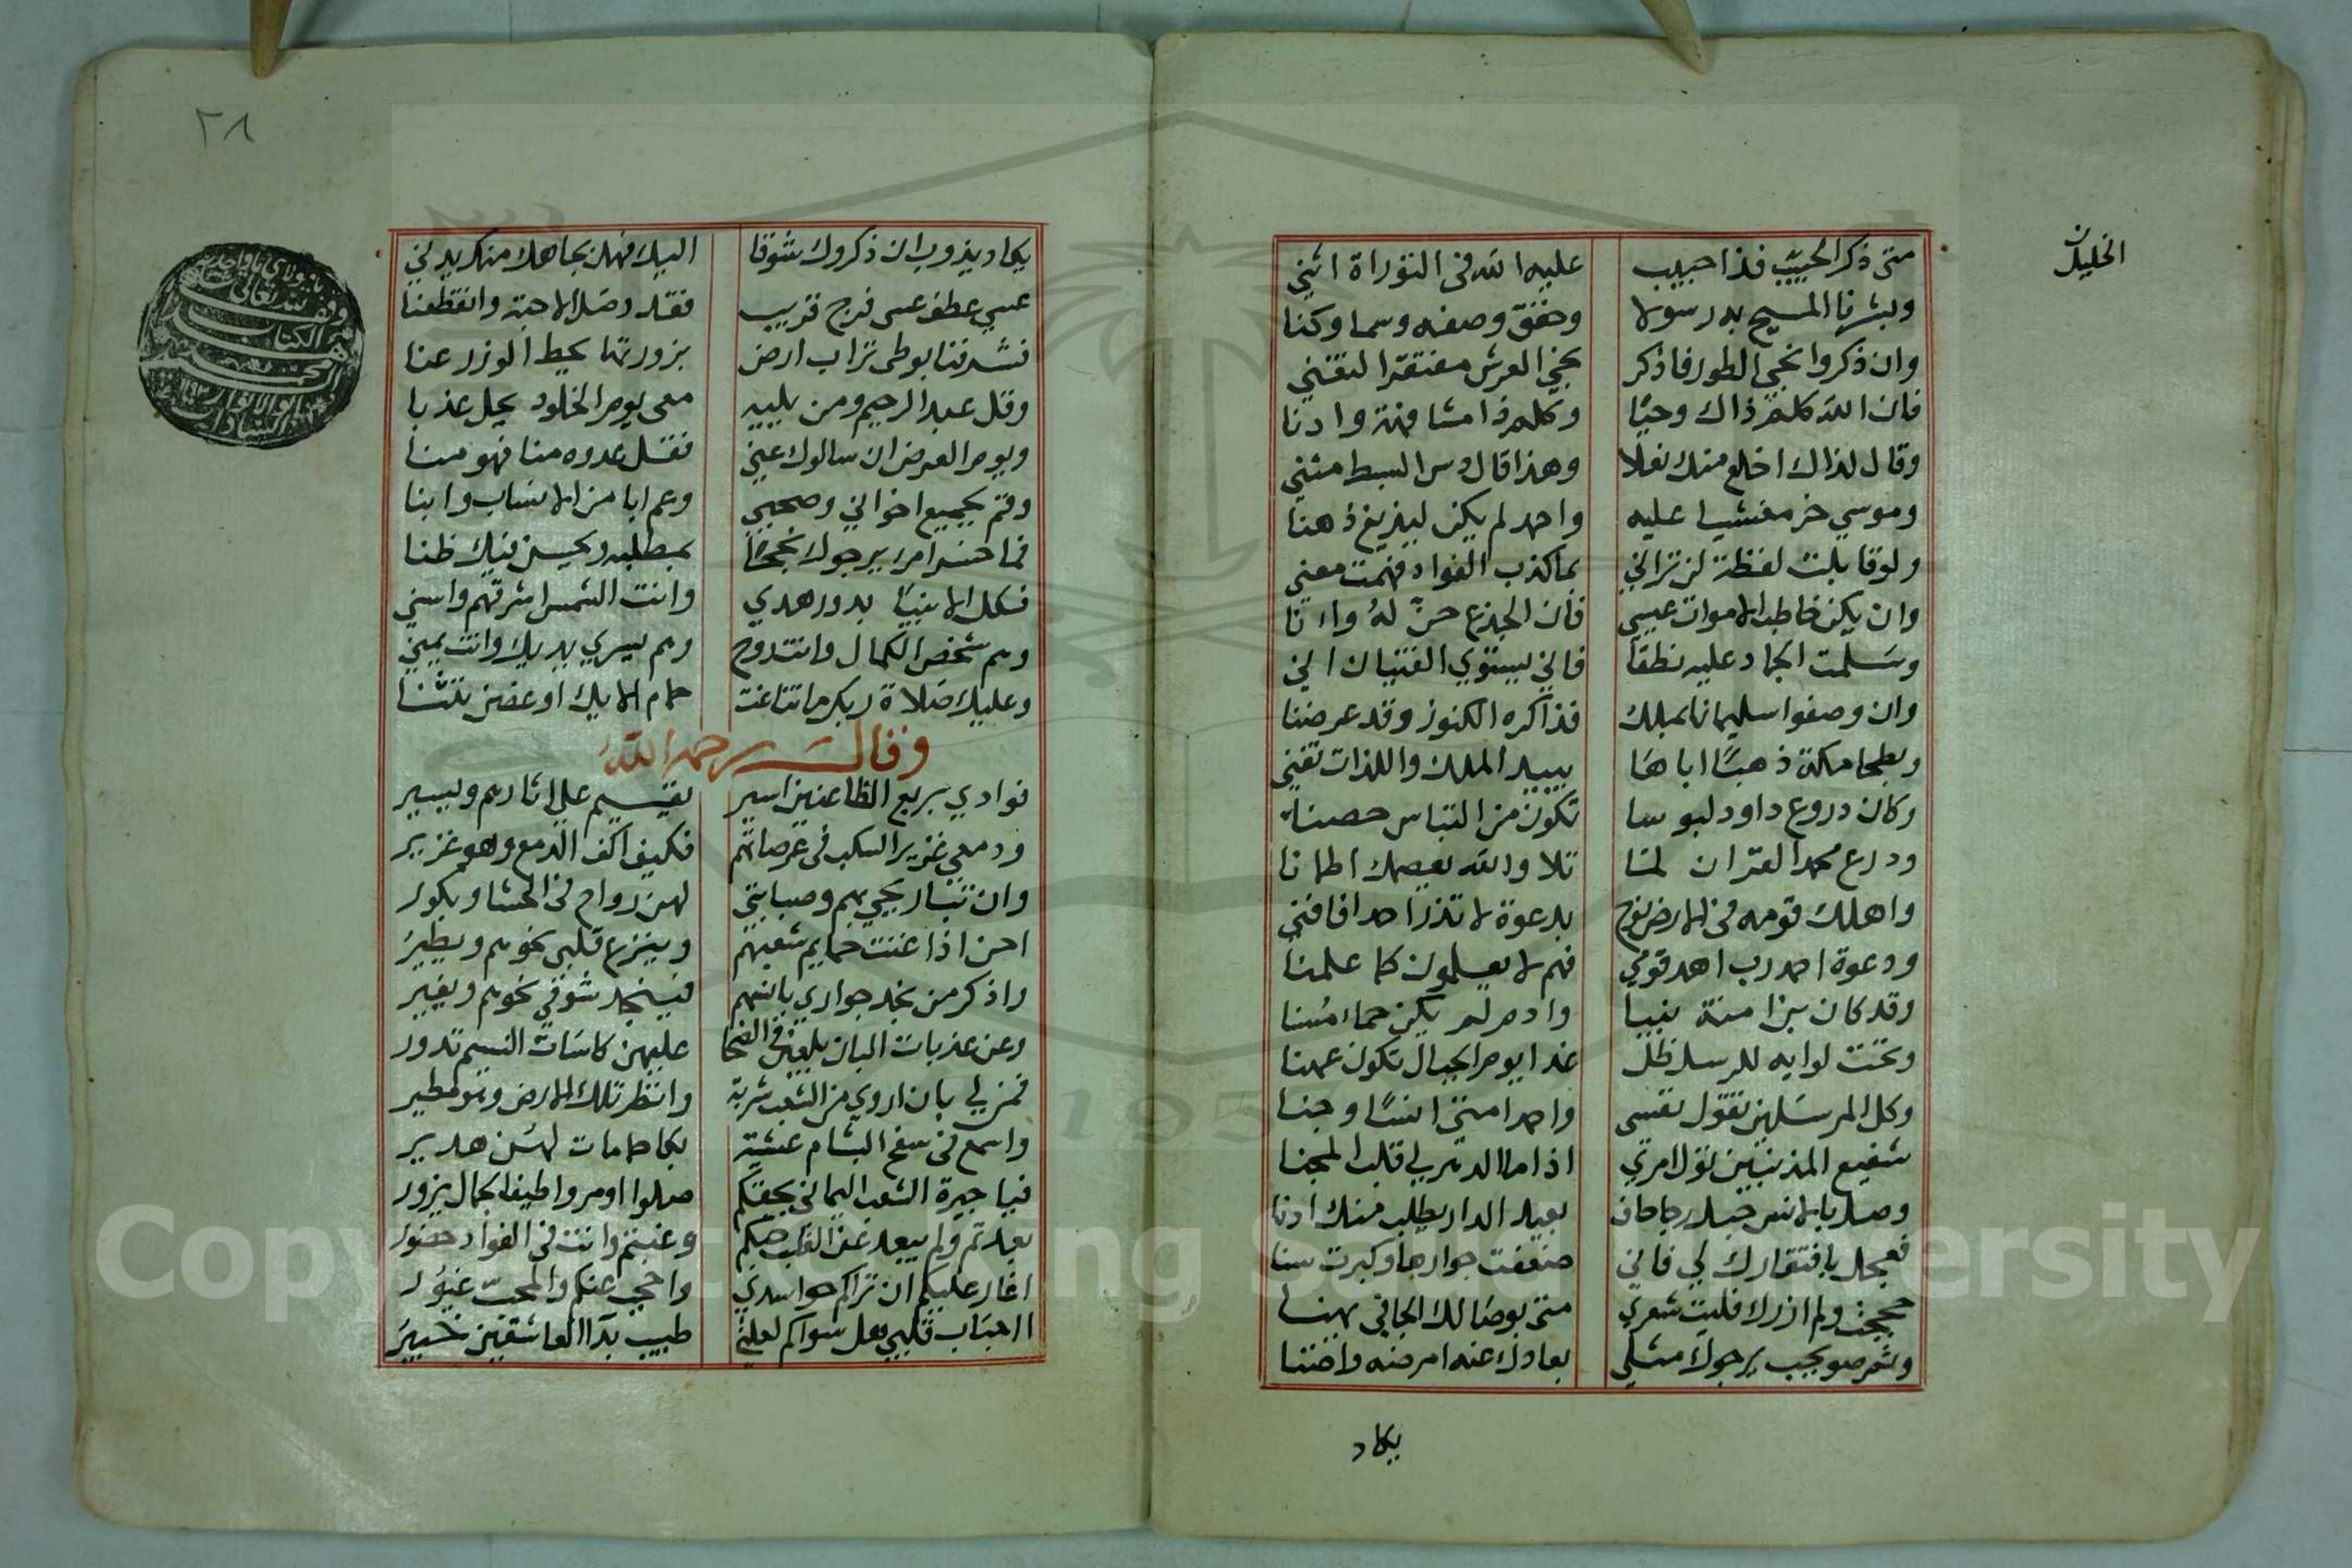 الخليلن
متى ذكر الحبيب فذا حبيب عليه الله فى التوراة اثني
وبشرنا المسيح به رسولا وحقق وصفه وسما وكنا
وان ذكروا نجي الطور فاذكر نجي العرش مفتقرا لتغني
فان الله كلم ذاك وحيا وكلم ذا مشافهة وادنا
وقال لذاك اخلع منك نعلا وهذا قال دس البسط مثني
وموسي خر مغشيا عليه واحمد لم يكن ليزيغ ذهنا
ولو قابلت لفظة لن تراني بما كذب الفواد فهمت معني
وان يكن خاطب الاموات عيسي فان الجذع حن له واءنا
وسلمت الجماد عليه نطقا فاني يستوي الفتيان اني
وان وصفوا سليمانا بملك فذا كره الكنوز وقد عرضنا
وبطحا مكة ذهبا اباها يبيد الملك واللذات تفني
وكان دروع داود لبوسا تكون من التباس حصنا
ودرع محمد القران لما تلا والله يعصمك اطمانا
واهلك قومه فى الارض نوح بدعوة لا تذر احدا فافني
ودعوة احمد رب اهد قومي فهم لا يعلمون كما علمنا
وقد كان بن امنة نبيا وادم لم يكن حماء مسنا
وتحت لوايه للرسل ظل غدا يوم الجبال تكون عهنا
وكل المرسلين تقول نفسى واحمد امتى انسا وجنا
شفيع المذنبين تول امري اذا ما الدهر لي قلب المجنا
وصل بالانس حبل رجا بعيد الدار يطلب منك ادنا
فعجل بافتقارك لي فاني ضعفت جوارحا وكبرت سنا
حججت ولم ازرك فليت شعري متى بوصالك الجافي يهنا
بعادك عنه امرضه واضنا
يكاد
٢٨
يكاد يذوب ان ذكروك شوقا اليك فهل بجاهك منك يدني
عسي عطف عسى فرج قريب فقد وصل الاحبة وانقطعنا
فشرفنا بوطى تراب ارض بزورتها يحط الوزر عنا
وقل عبد الرحيم ومن يليه معى يوم الخلود يحل عدنا
ويوم العرض ان سالوك عني فقل عدوه منا فهو منا
وقم بجميع اخواني وصحبي وعم ابا من الانساب وابنا
فما خسر امرء يرجوك نجحا بمطلبه ويحسن فيك ظنا
فكل الانبيا بدور هدي وانت الشمس اشرقهم واسني
وهم شخص الكمال وانت روح وهم يسري يديك وانت يمني
وعليك صلاة ربك ما تناغت حمام الايك او غصن تثنا
وقال رحمه الله
فوادي بربع الظاعنين اسير يقيم على اثارهم ويسير
ودمعي غزير السكب فى عرصاتهم فكيف اكف الدمع وهو غزير
وان تباريحي بهم وصبابتي لهن رواح فى الحشا وبكور
احن اذا غنت حمايم شعبهم وينزع قلبي نحوهم ويطير
واذكر من نجد جواري بانهم فينجد شوقي نحوهم ويغير
وعن عذبات البان يلعبن فى الضحا عليهن كاسات النسيم تدور
فمن لي بان اروي من الشعب شربة وانظر تلك الارض وهو مطير
واسمع فى سفح البشام عشية بكا حامات لهن هدير
فيا جيرة الشعب اليماني بحقكم صلوا او مروا طيف الجمال يزور
بعدتم ولم يبعد عن القلب حبكم وغبتم وانت فى الفواد حضور
اغار عليكم ان تراكم حواسدي واحجب عنكم والمحب غيور
ااحباب قلبي هل سواكم لعلتي طبيب بدآ العاشقين خبير